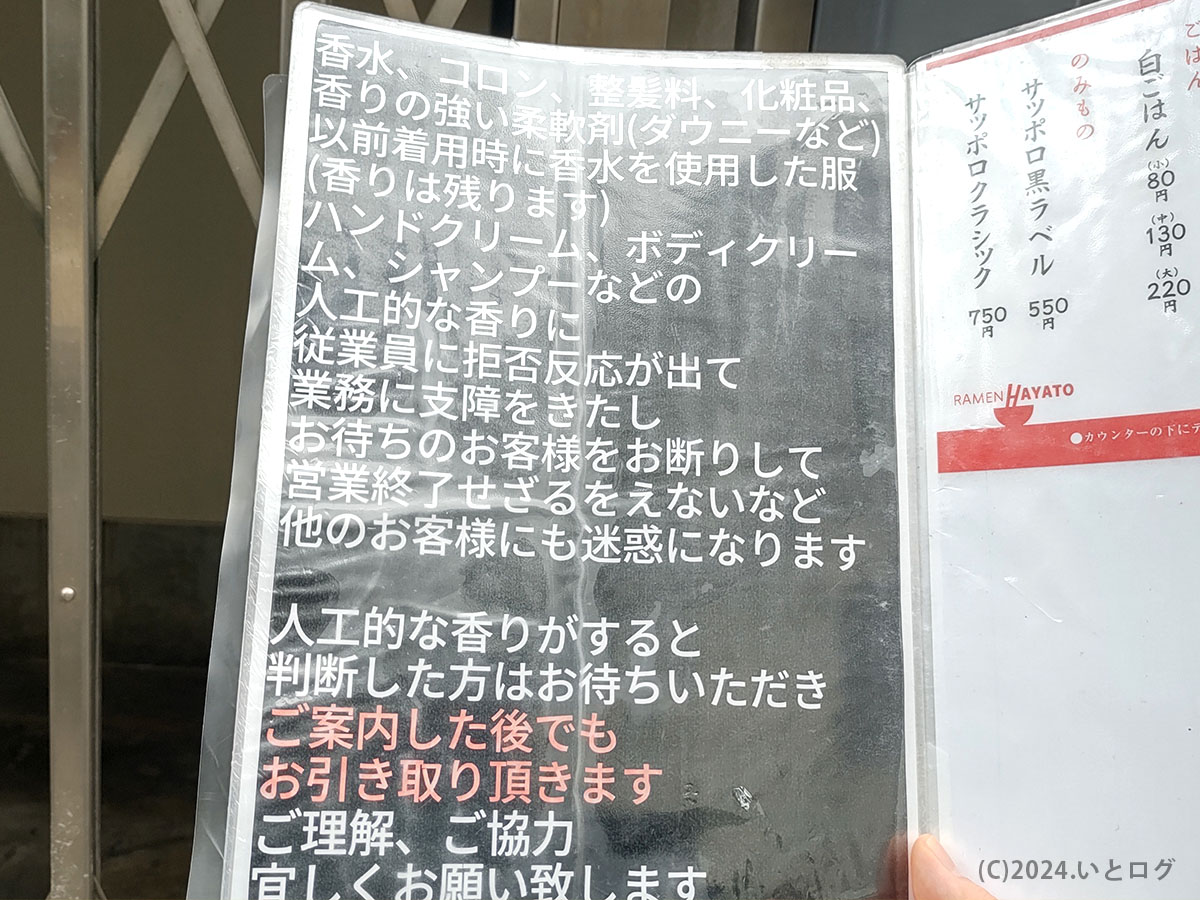 香水、コロン、整髪料、化粧品、
香りの強い柔軟剤(ダウニーなど)
以前着用時に香水を使用した服
(香りは残ります)
ハンドクリーム、ボディクリー
ム、シャンプーなどの
人工的な香りに
従業員に拒否反応が出て
業務に支障をきたし
お待ちのお客様をお断りして
営業終了せざるをえないなど
他のお客様にも迷惑になります
人工的な香りがすると
判断した方はお待ちいただき
ご案内した後でも
お引き取り頂きます
ご理解、ご協力
宜しくお願い致します
ごはん
白ごはん
(小)
80
円
(中)
130
円
(大)
220
円
のみもの
サッポロ黒ラベル
550
円
サッポロクラシック
750
円
RAMEN HAYATO
●カウンターの下にテ
(C)2024.いとログ